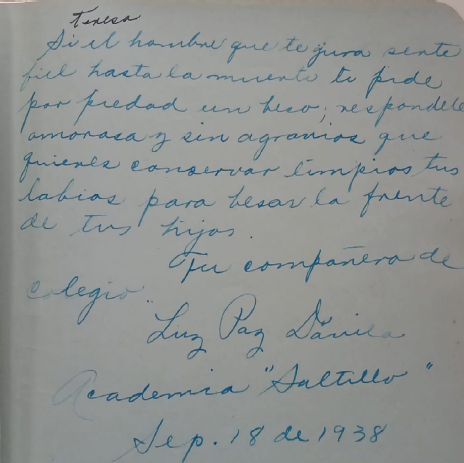 Teresa
Si el hombre que te jura serte
fiel hasta la muerte te pide
por piedad un beso; respondele
amorosa y sin agravios que
quieres conservar limpios tus
labios para besar la frente
de tus hijos.
Tu compañera de
colegio.
Luz Paz Dávila
Academia "Saltillo"
Sep. 18 de 1938